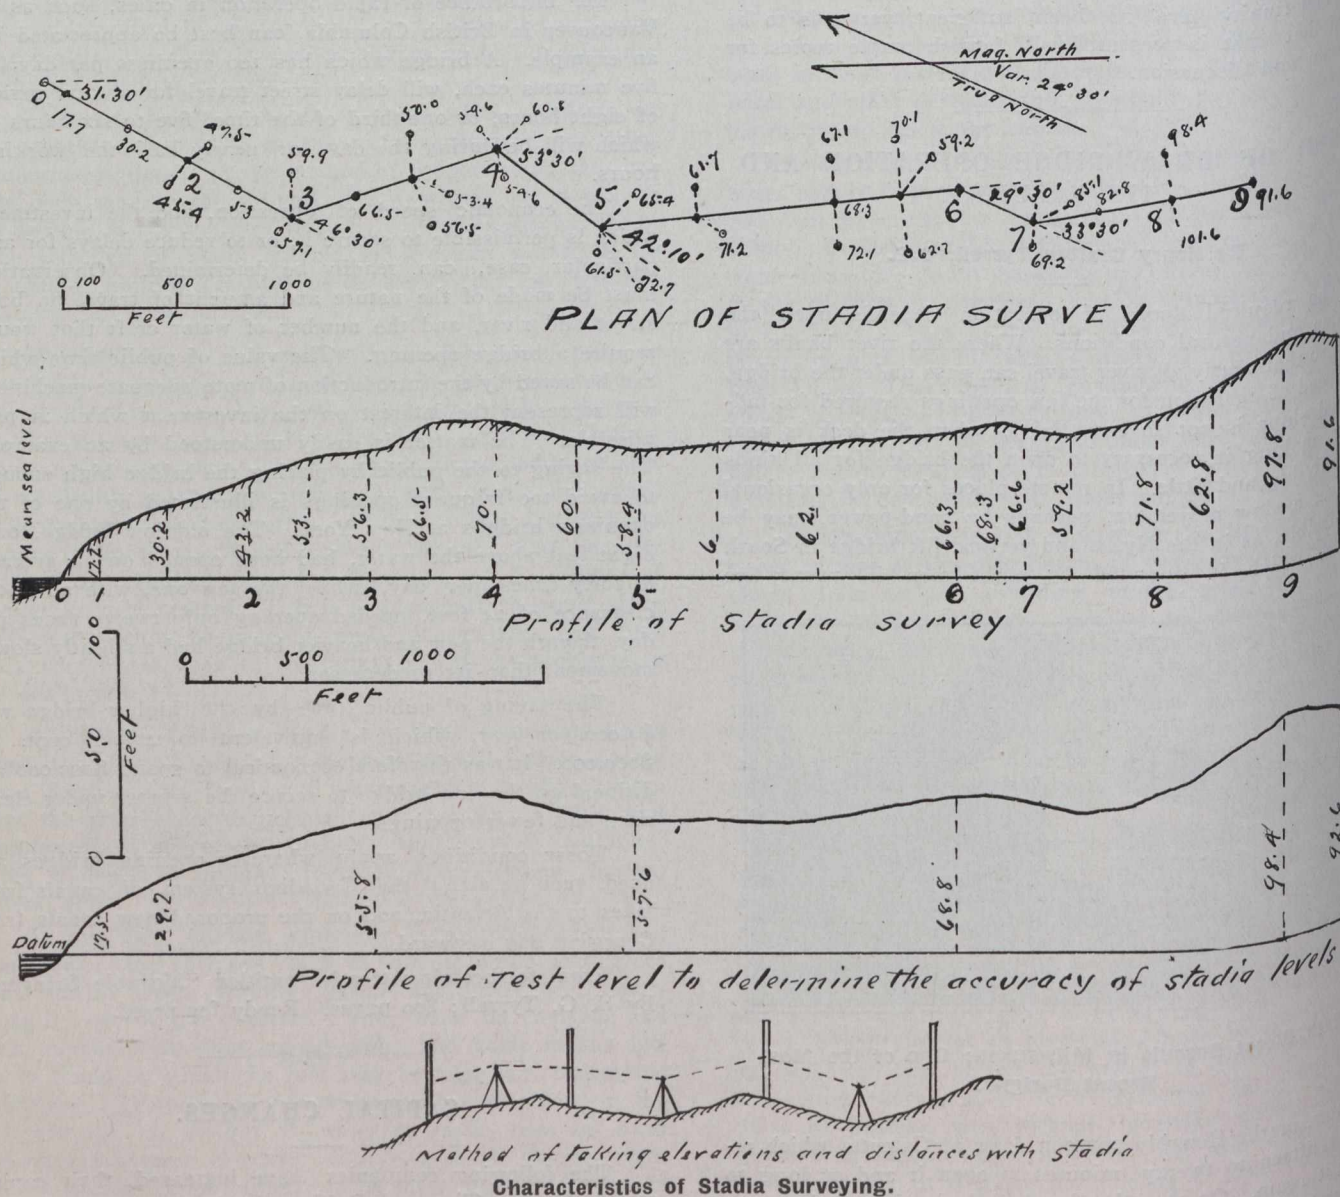 Mag. North
Var. 24° 30'
True North
0
31.30'
17.7
30.2
47.5
2
45.4
53
59.9
3
46° 30'
57.1
66.5
50.0
53.4
56.5
59.6
60.5
4
53° 30'
54.6
5
65.4
42° 10'
61.5
22.7
61.7
71.2
67.1
68.3
72.1
70.1
59.2
62.7
6
29° 30'
85.1
82.8
7
33° 30'
69.2
98.4
8
101.6
9 91.6
0 100 500 1000
Feet
PLAN OF STADIA SURVEY
Mean sea level
30.2
43.2
53.
56.3
66.5
70.
60.
58.4
6
62.
66.3
68.3
66.6
59.2
71.8
62.8
97.8
91.6
0 1 2 3 4 5 6 7 8 9
Profile of stadia survey
100
50
0
Feet
0 500 1000
Feet
Datum
17.5
29.2
55.8
57.6
68.8
98.4
Profile of Test level to determine the accuracy of stadia levels
Method of taking elevations and distances with stadia
Characteristics of Stadia Surveying.